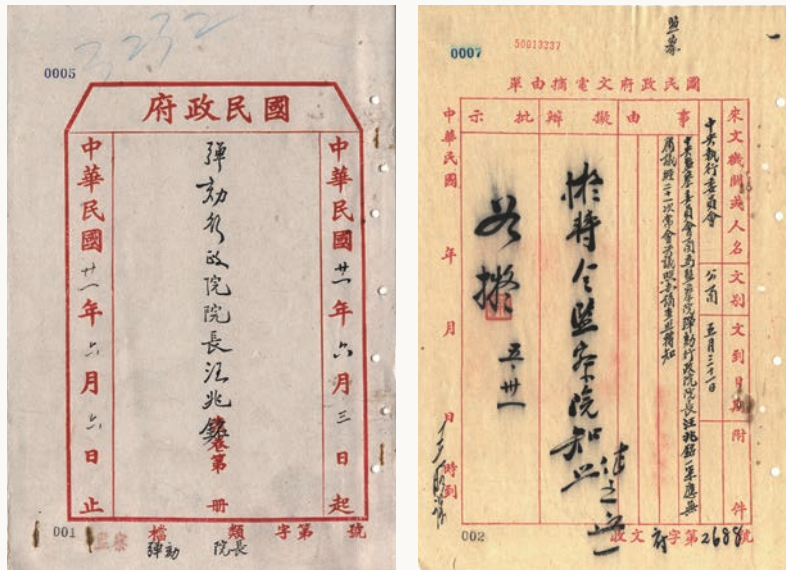 3232
0005
國民政府
中華民國廿一年六月三日起
彈劾行政院院長汪兆銘
本卷第 冊
中華民國廿一年六月六日止
001
檔 類 字第 號
監察
彈劾
院長
0007
50013237
監察
一
國民政府文電摘由單
來文機關或人名
文別
文到日期
附件
中央執行委員會
公函
五月三十一日
事由
擬辦
批示
中央監察委員會函為監察院彈劾行政院院長汪兆銘一案應無
庸議經二十一次常會決議照辦請查照轉知
擬轉令監察院知照
若擬
五、卅一
中華民國 年 月 日 時到
002
收文府字第2688號